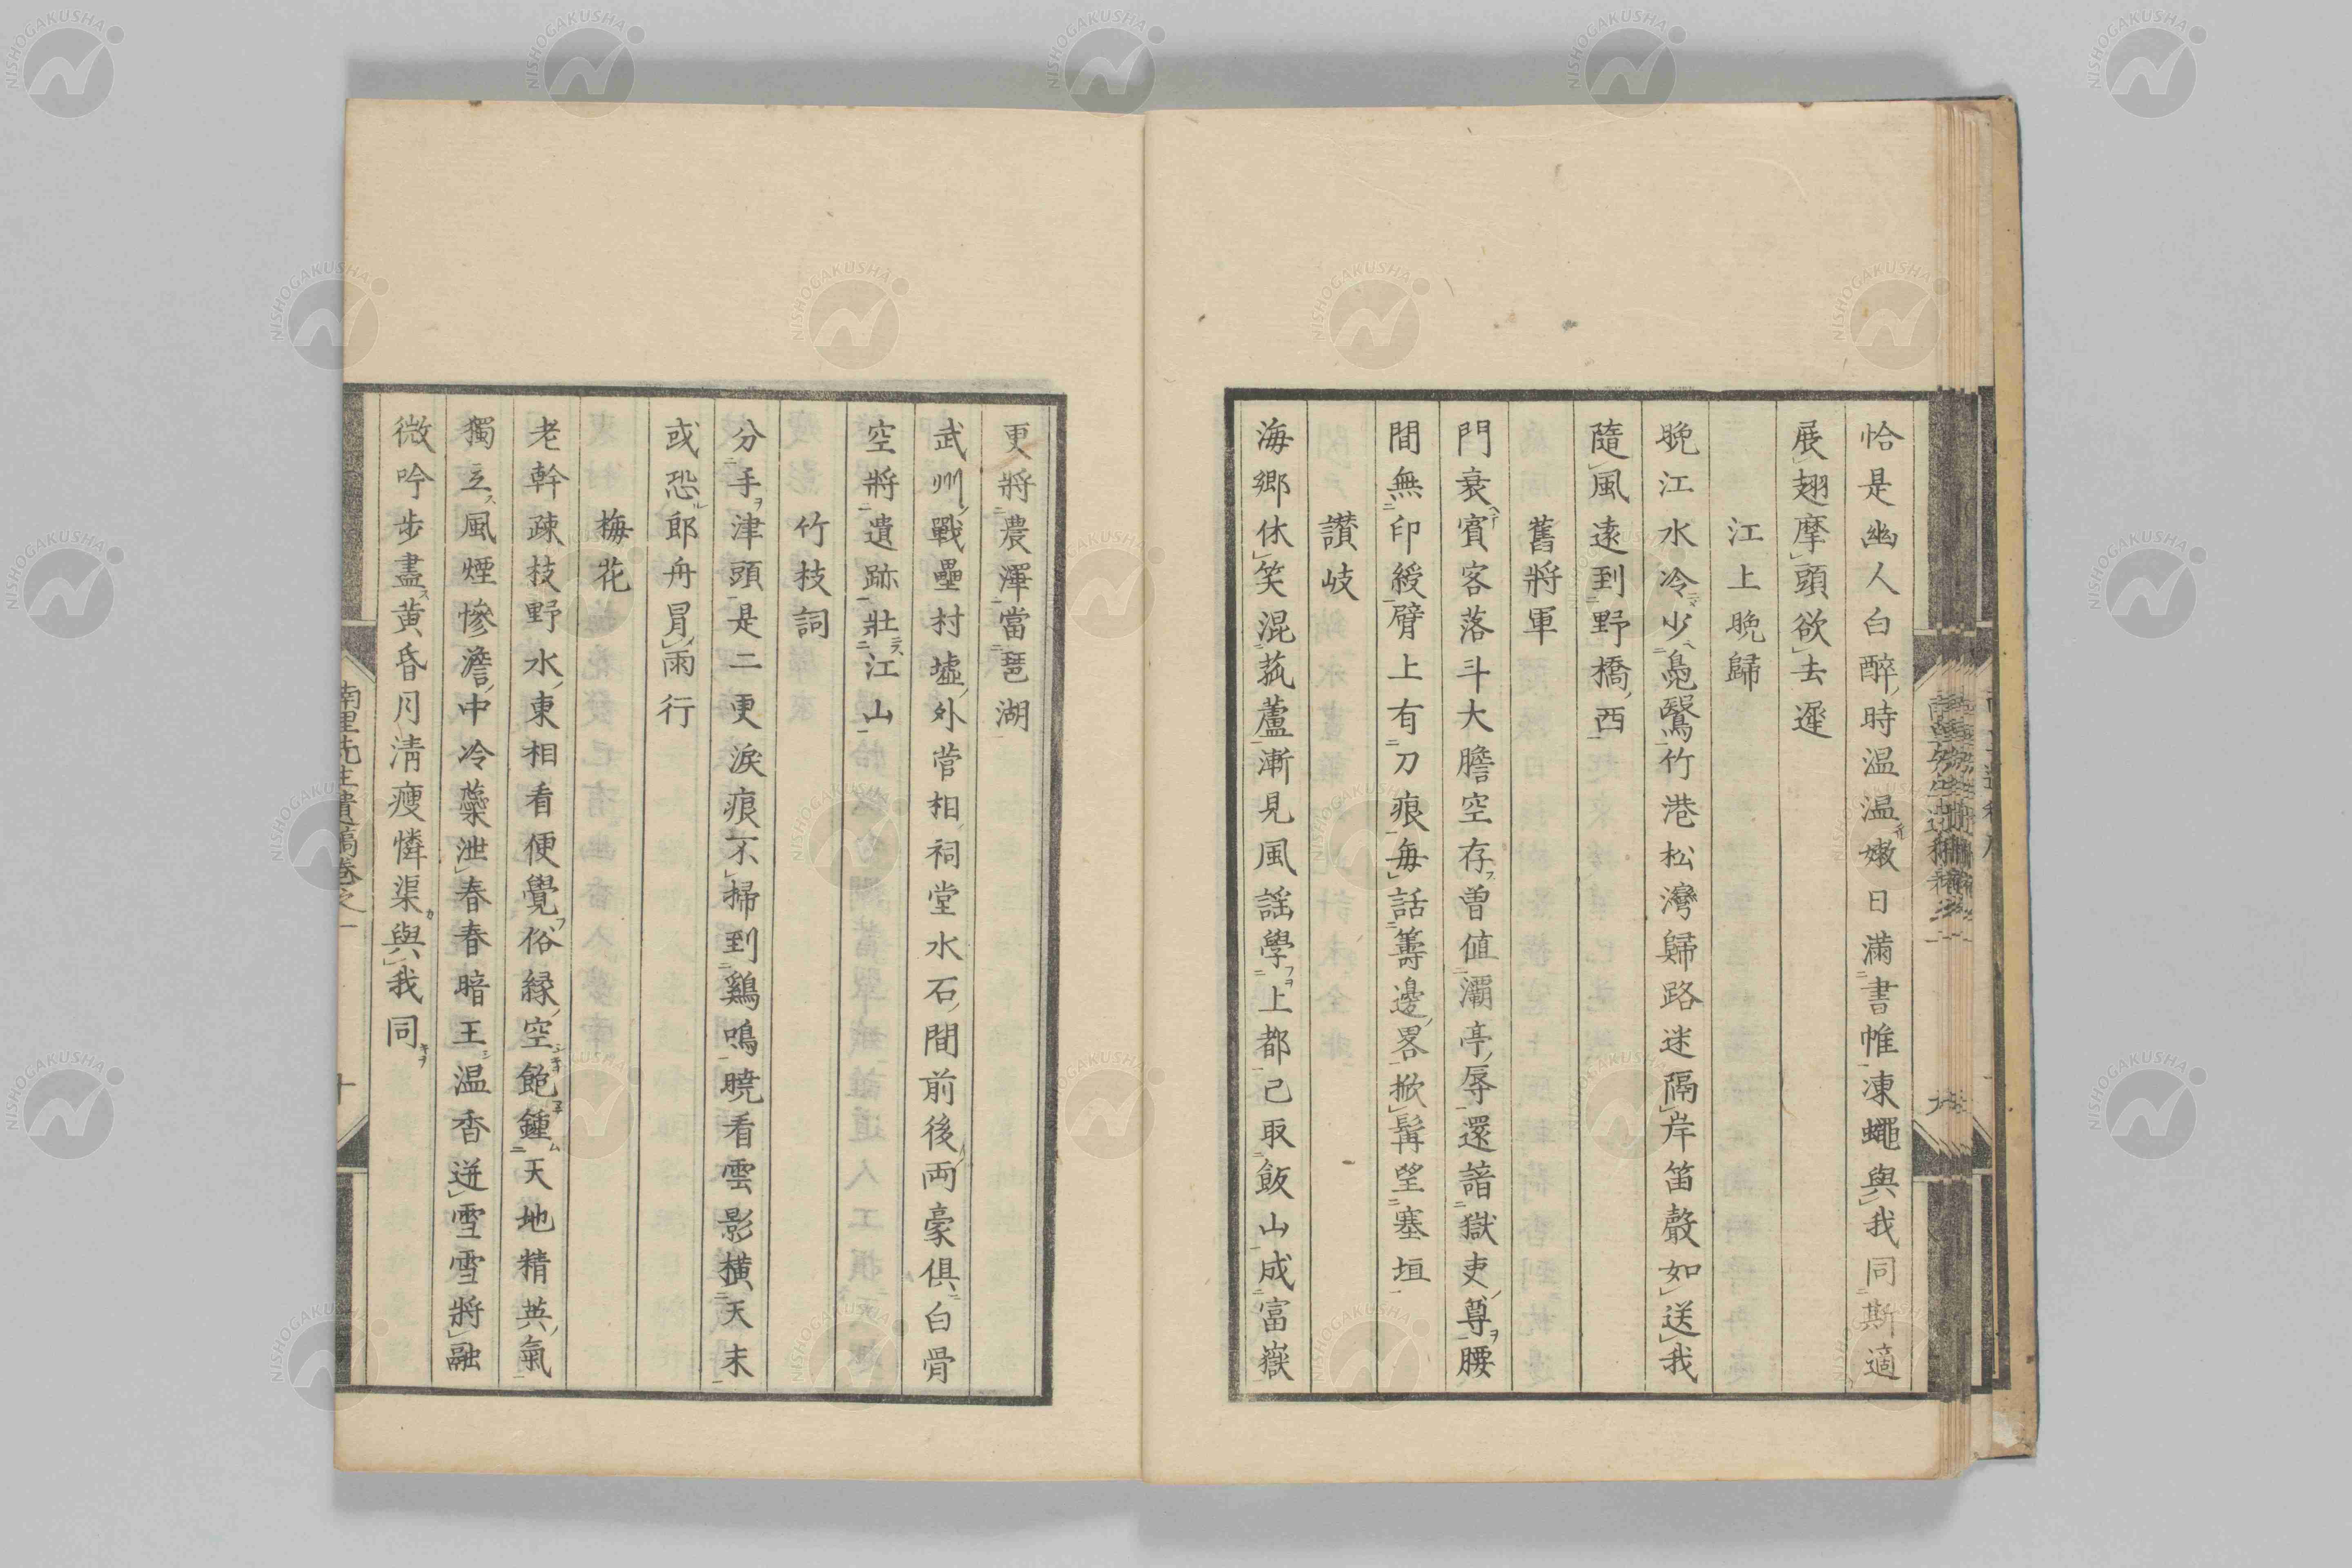 恰是幽人白醉時温温嫩日滿書帷凍蠅與我同斯適
展翅摩頭欲去遲
江上晩歸
晩江水冷少鳧鷖竹港松灣歸路迷隔岸笛聲如送我
隨風遠到野橋西
舊將軍
門衰賓客落斗大膽空存曽値灞亭辱還諳獄吏尊腰
間無印綬臂上有刀痕毎話籌邊畧掀髯望塞垣
讃岐
海郷休笑混菰蘆漸見風謡學上都己取飯山成富嶽
更將農渾當琶湖
武州戰壘村墟外菅相祠堂水石間前後両豪俱白骨
空將遺跡壯江山
竹枝詞
分手津頭是二更淚痕不掃到鷄鳴曉看雲影横天末
或恐郎舟冐雨行
梅花
老幹疎枝野水東相看便覺俗縁空飽鍾天地精英氣
獨立風煙慘澹中冷蘂泄春春暗王温香迸雪雪將融
微吟步盡黄昏月清瘦憐渠與我同
南里先生遺稿卷之一
十
NISHOGAKUSHA